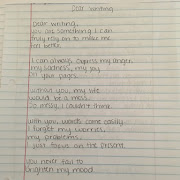 Dear Writing
Dear writing,
you are something I can
truly rely on to make me
feel better.
I can always express my anger,
my sadness, my joy
on your pages.
without you, my life
would be a mess.
So messy, I couldn't think.
with you, words come easily
I forget my worries,
my problems.
just focus on the present.
you never fail to
brighten my mood